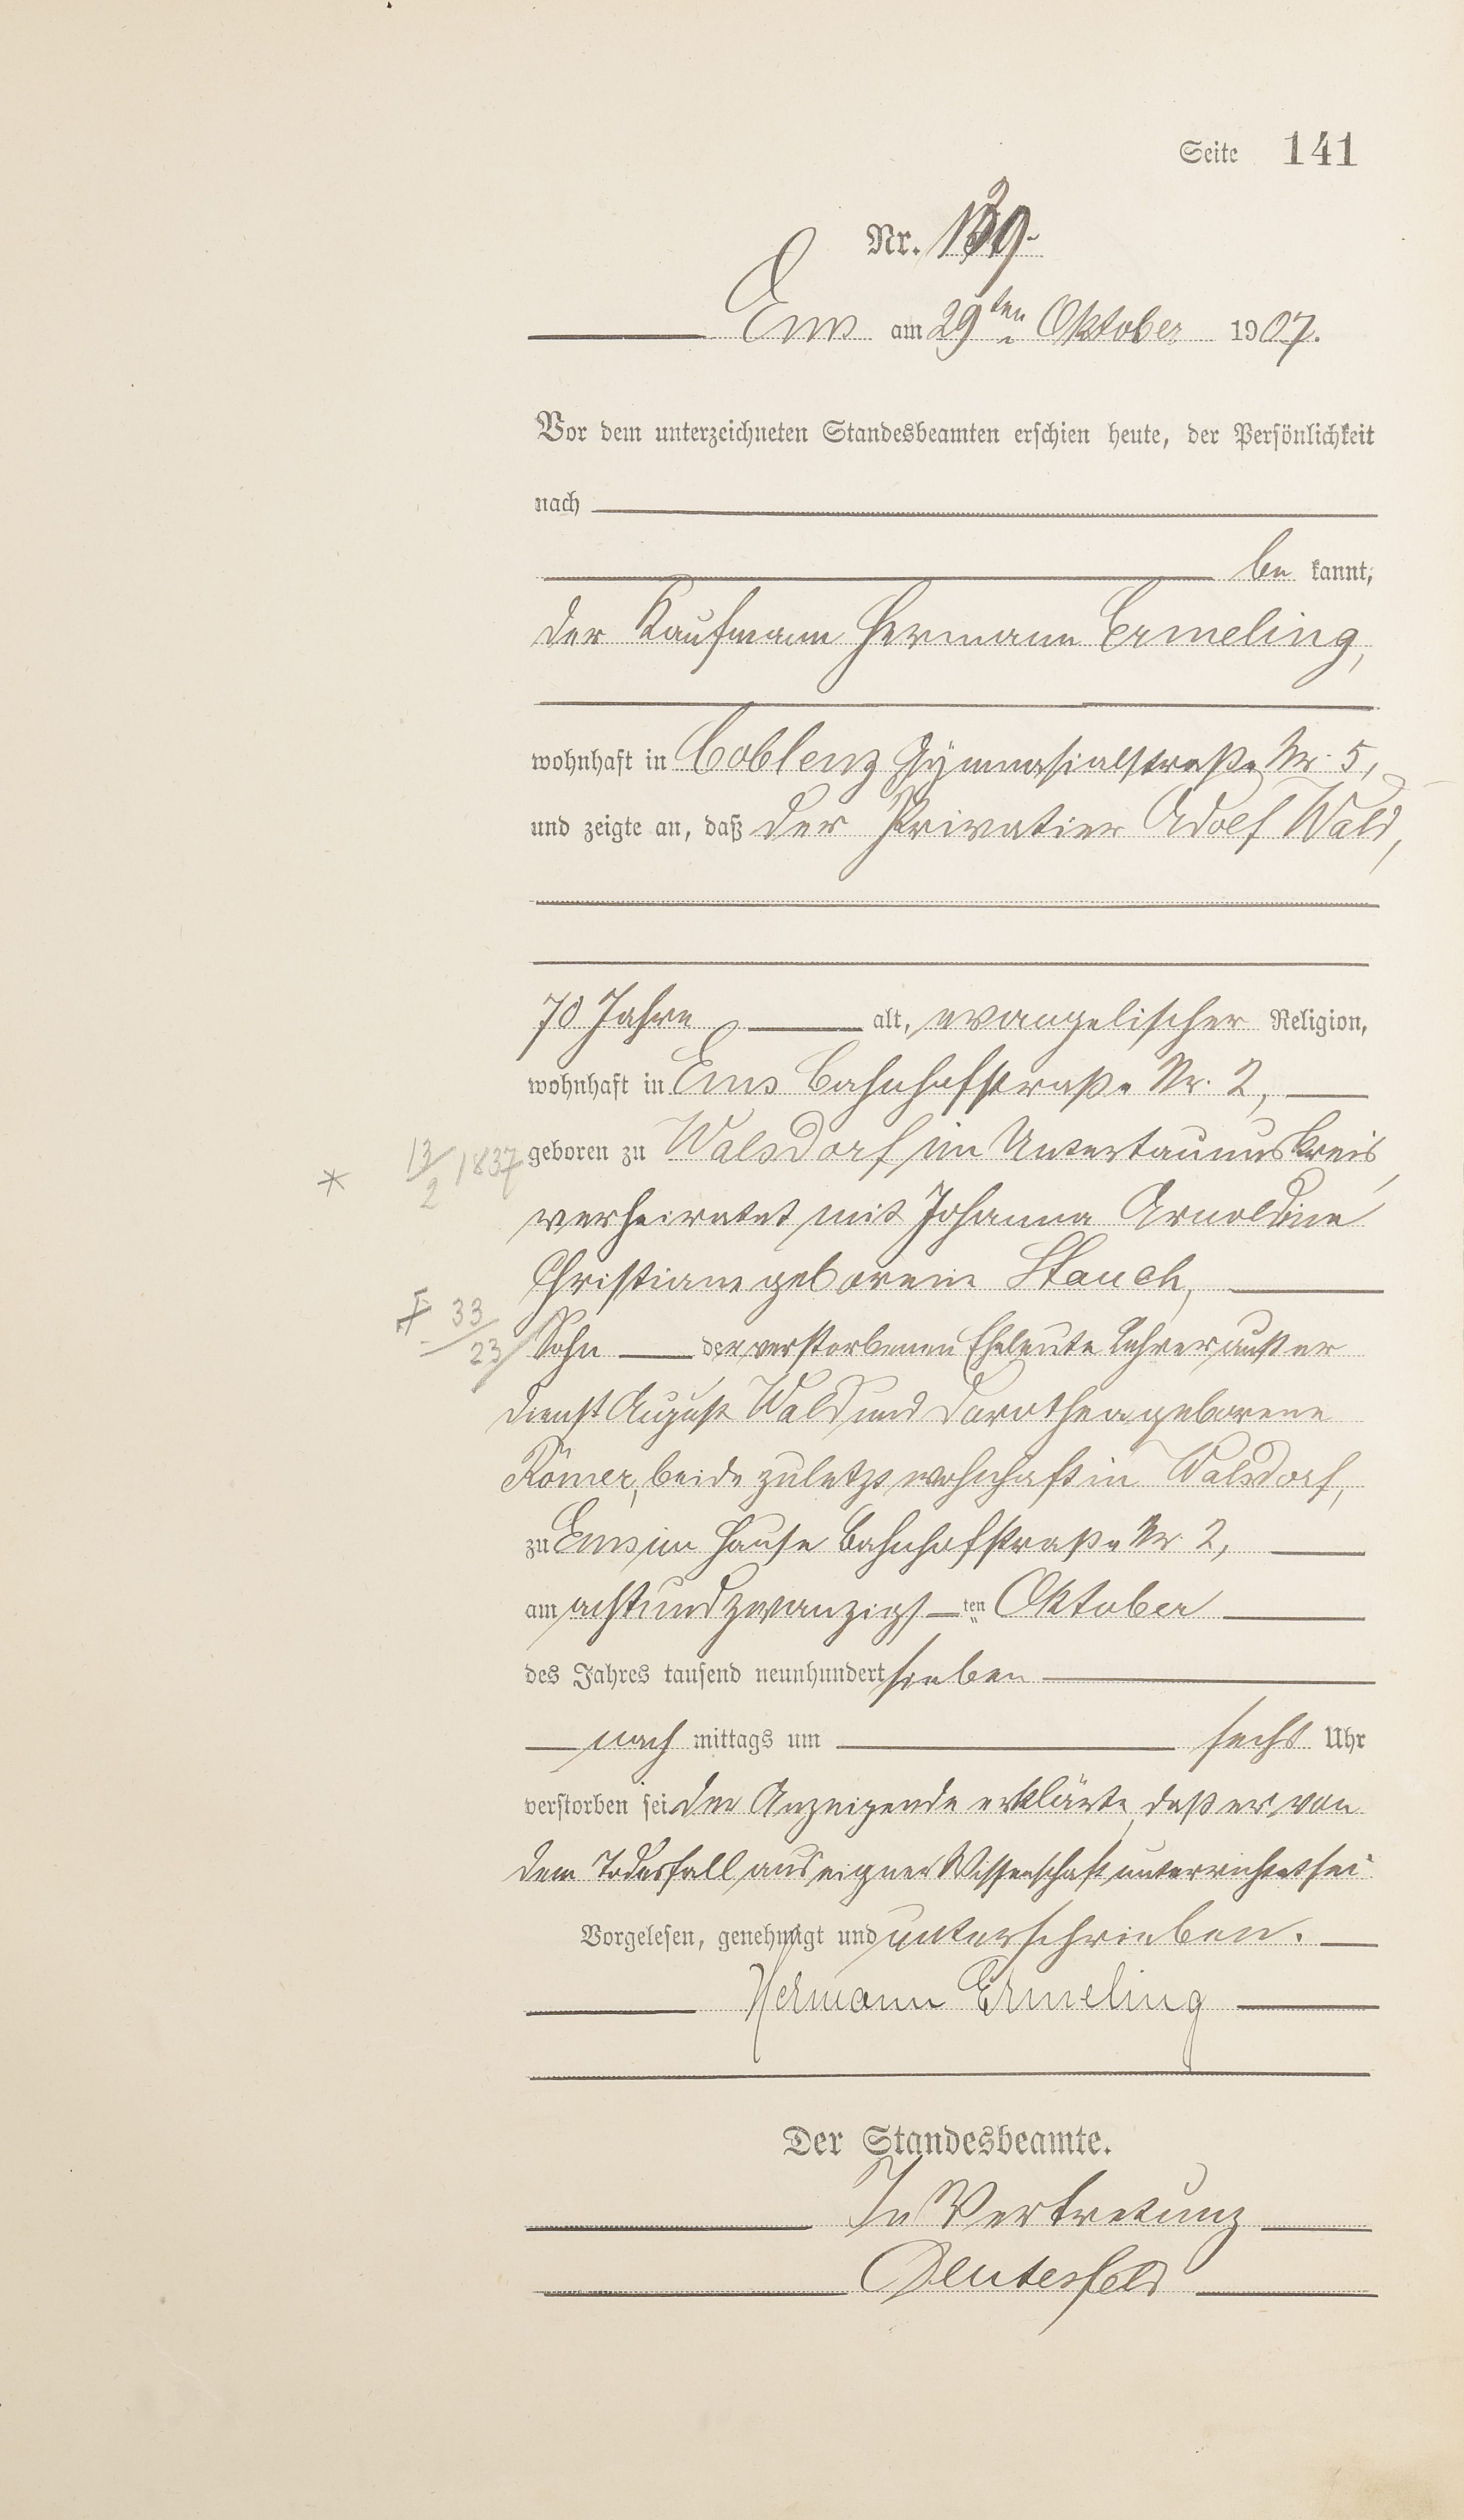 Seite 141
Nr. 139.
Ems am 29ten Oktober 1907.
Vor dem unterzeichneten Standesbeamten erschien heute, der Persönlichkeit
nach
be kannt,
der Kaufmann Hermann Ermeling,
wohnhaft in Coblenz Gymnasialstraße Nr. 5,
und zeigte an, daß der Privatier Adolf Wald,
70 Jahre alt, evangelischer Religion,
wohnhaft in Ems Bahnhofstraße Nr. 2,
* 13/2 1837 geboren zu Walsdorf im Untertaunuskreis,
verheiratet mit Johanna Arnoldine
Christiane geborene Stauch,
33/23 Sohn der verstorbenen Eheleute Lehrer außer
Dienst August Wald und Dorothea geborene
Römer, beide zuletzt wohnhaft in Walsdorf,
zu Ems im Hause Bahnhofstraße Nr. 2,
am achtundzwanzigs ten Oktober
des Jahres tausend neunhundert sieben
nach mittags um sechs Uhr
verstorben sei. Der Anzeigende erklärte, daß er von
dem Todesfall aus eigner Wissenschaft unterrichtet sei.
Vorgelesen, genehmigt und unterschrieben.
Hermann Ermeling
Der Standesbeamte.
In Vertretung